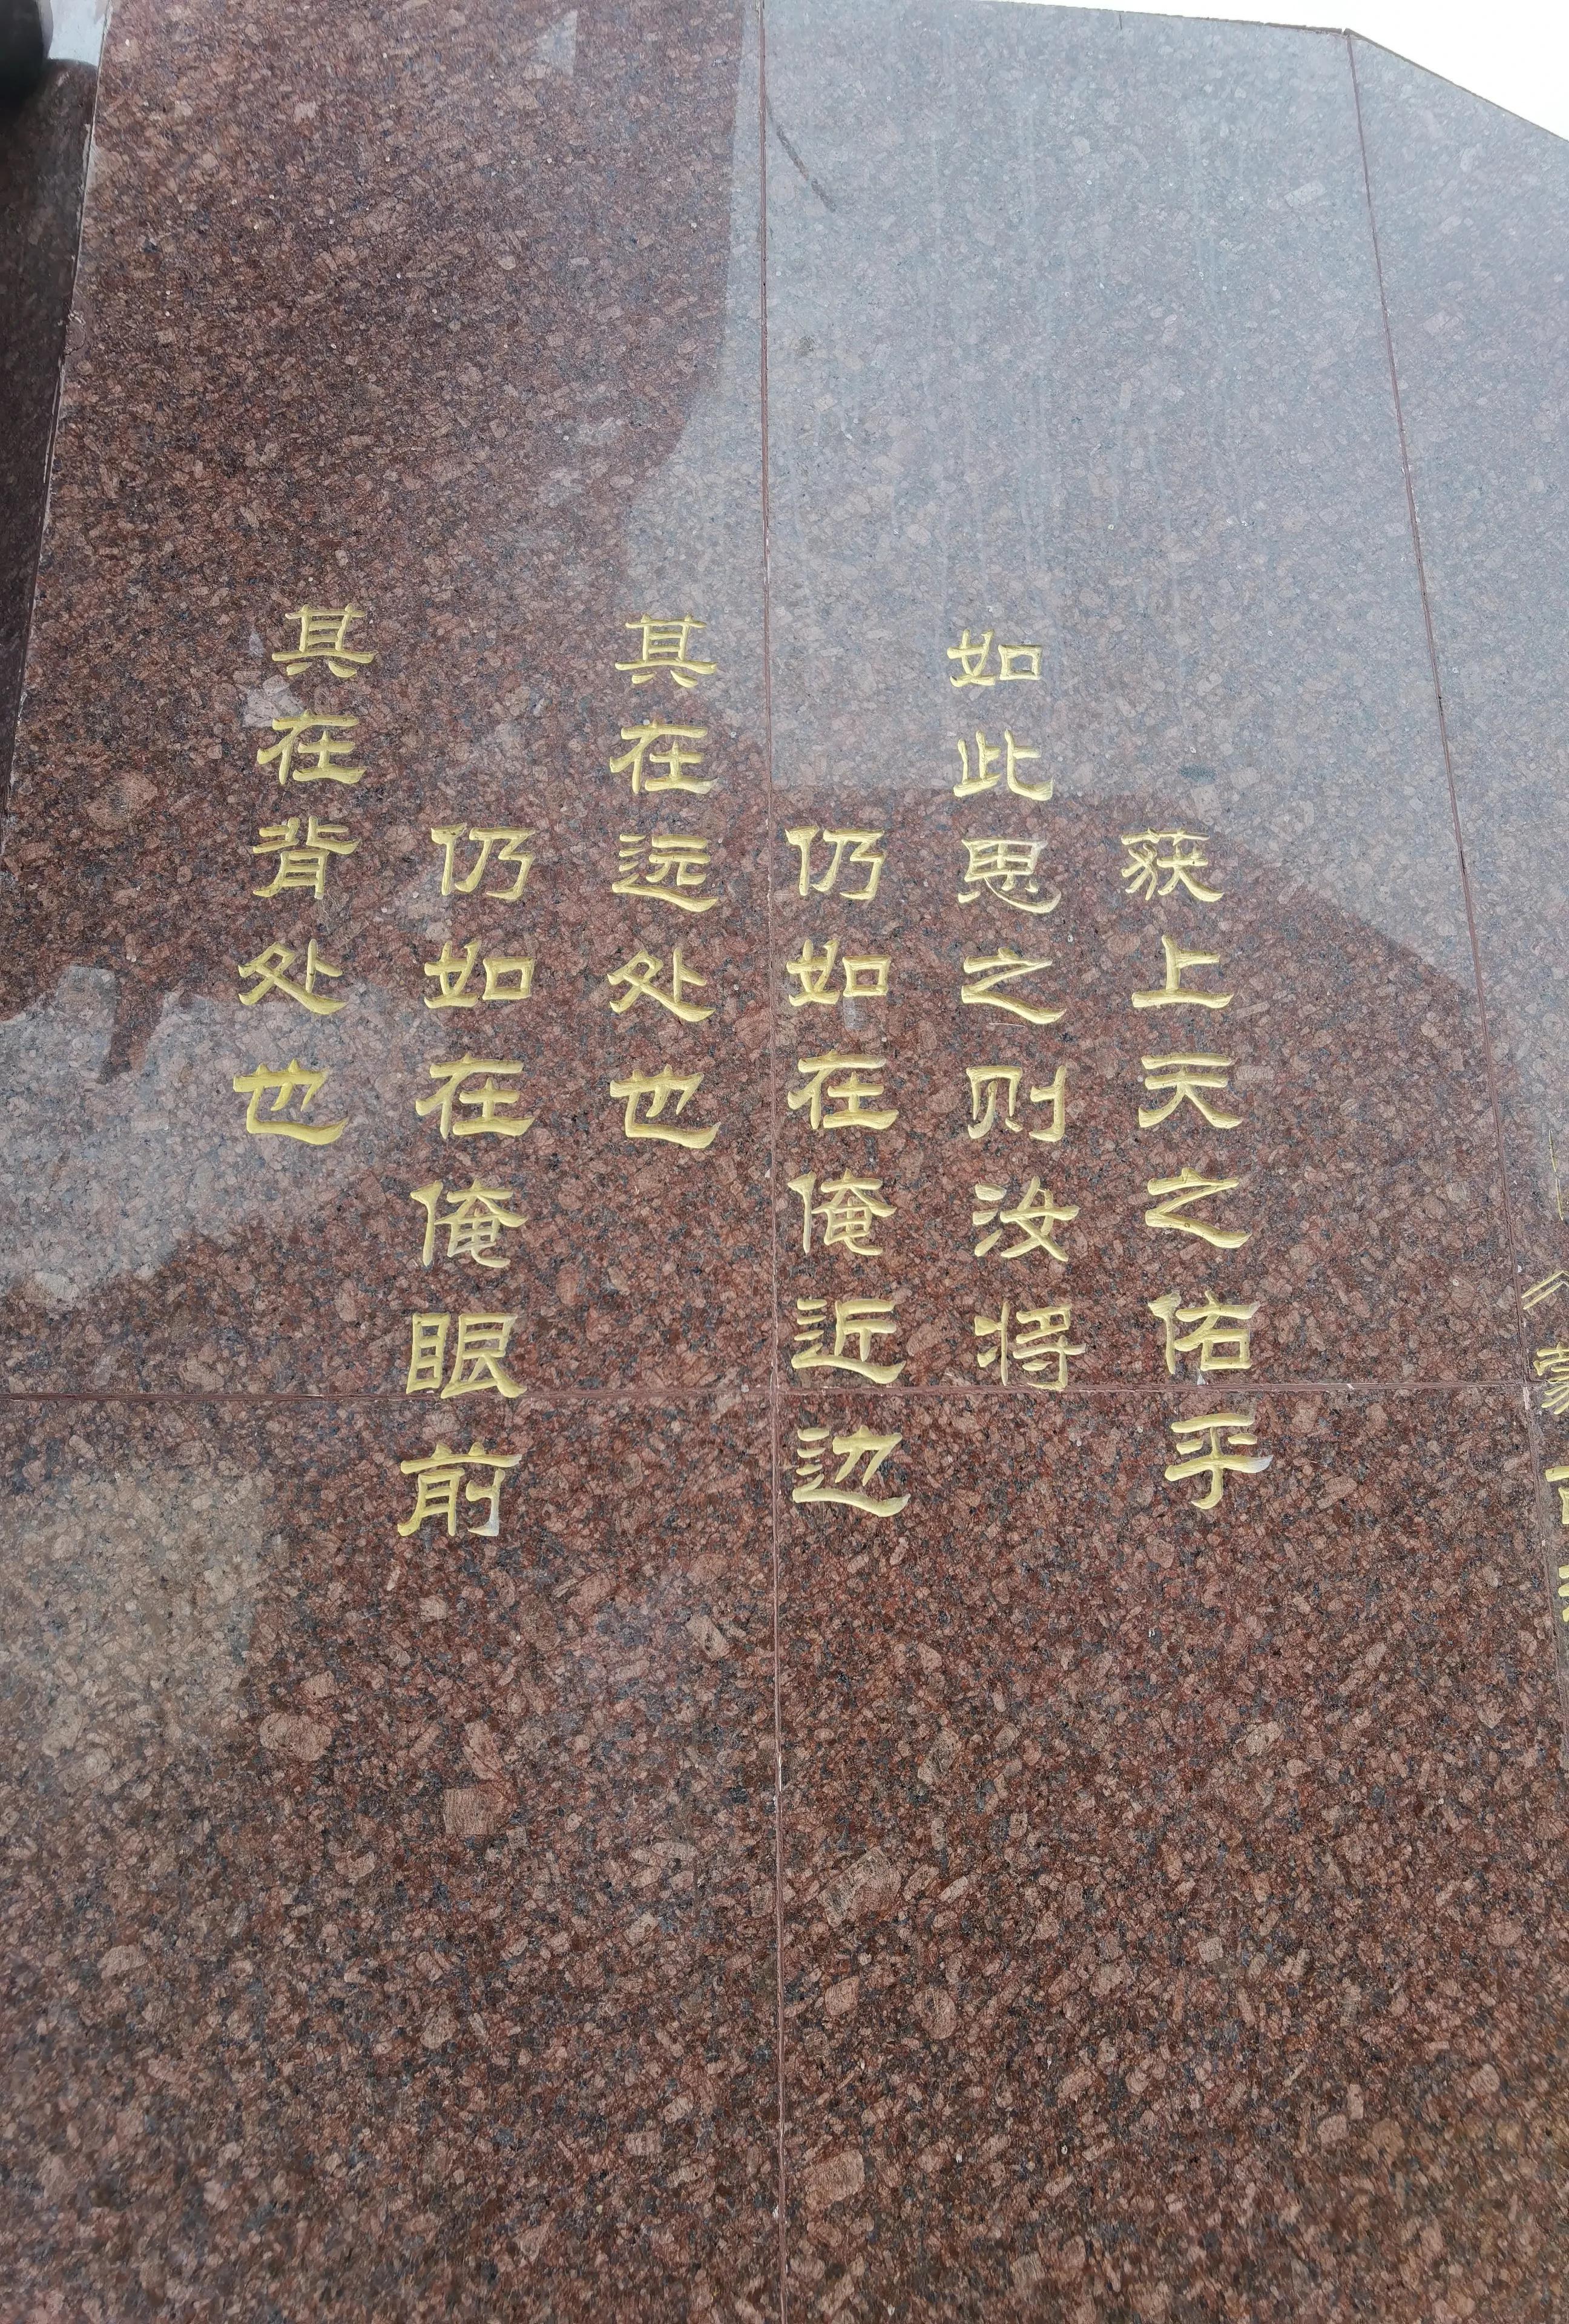 其在背处也
仍如在俺眼前
其在远处也
仍如在俺近边
如此思之则汝将
获上天之佑乎
《蒙